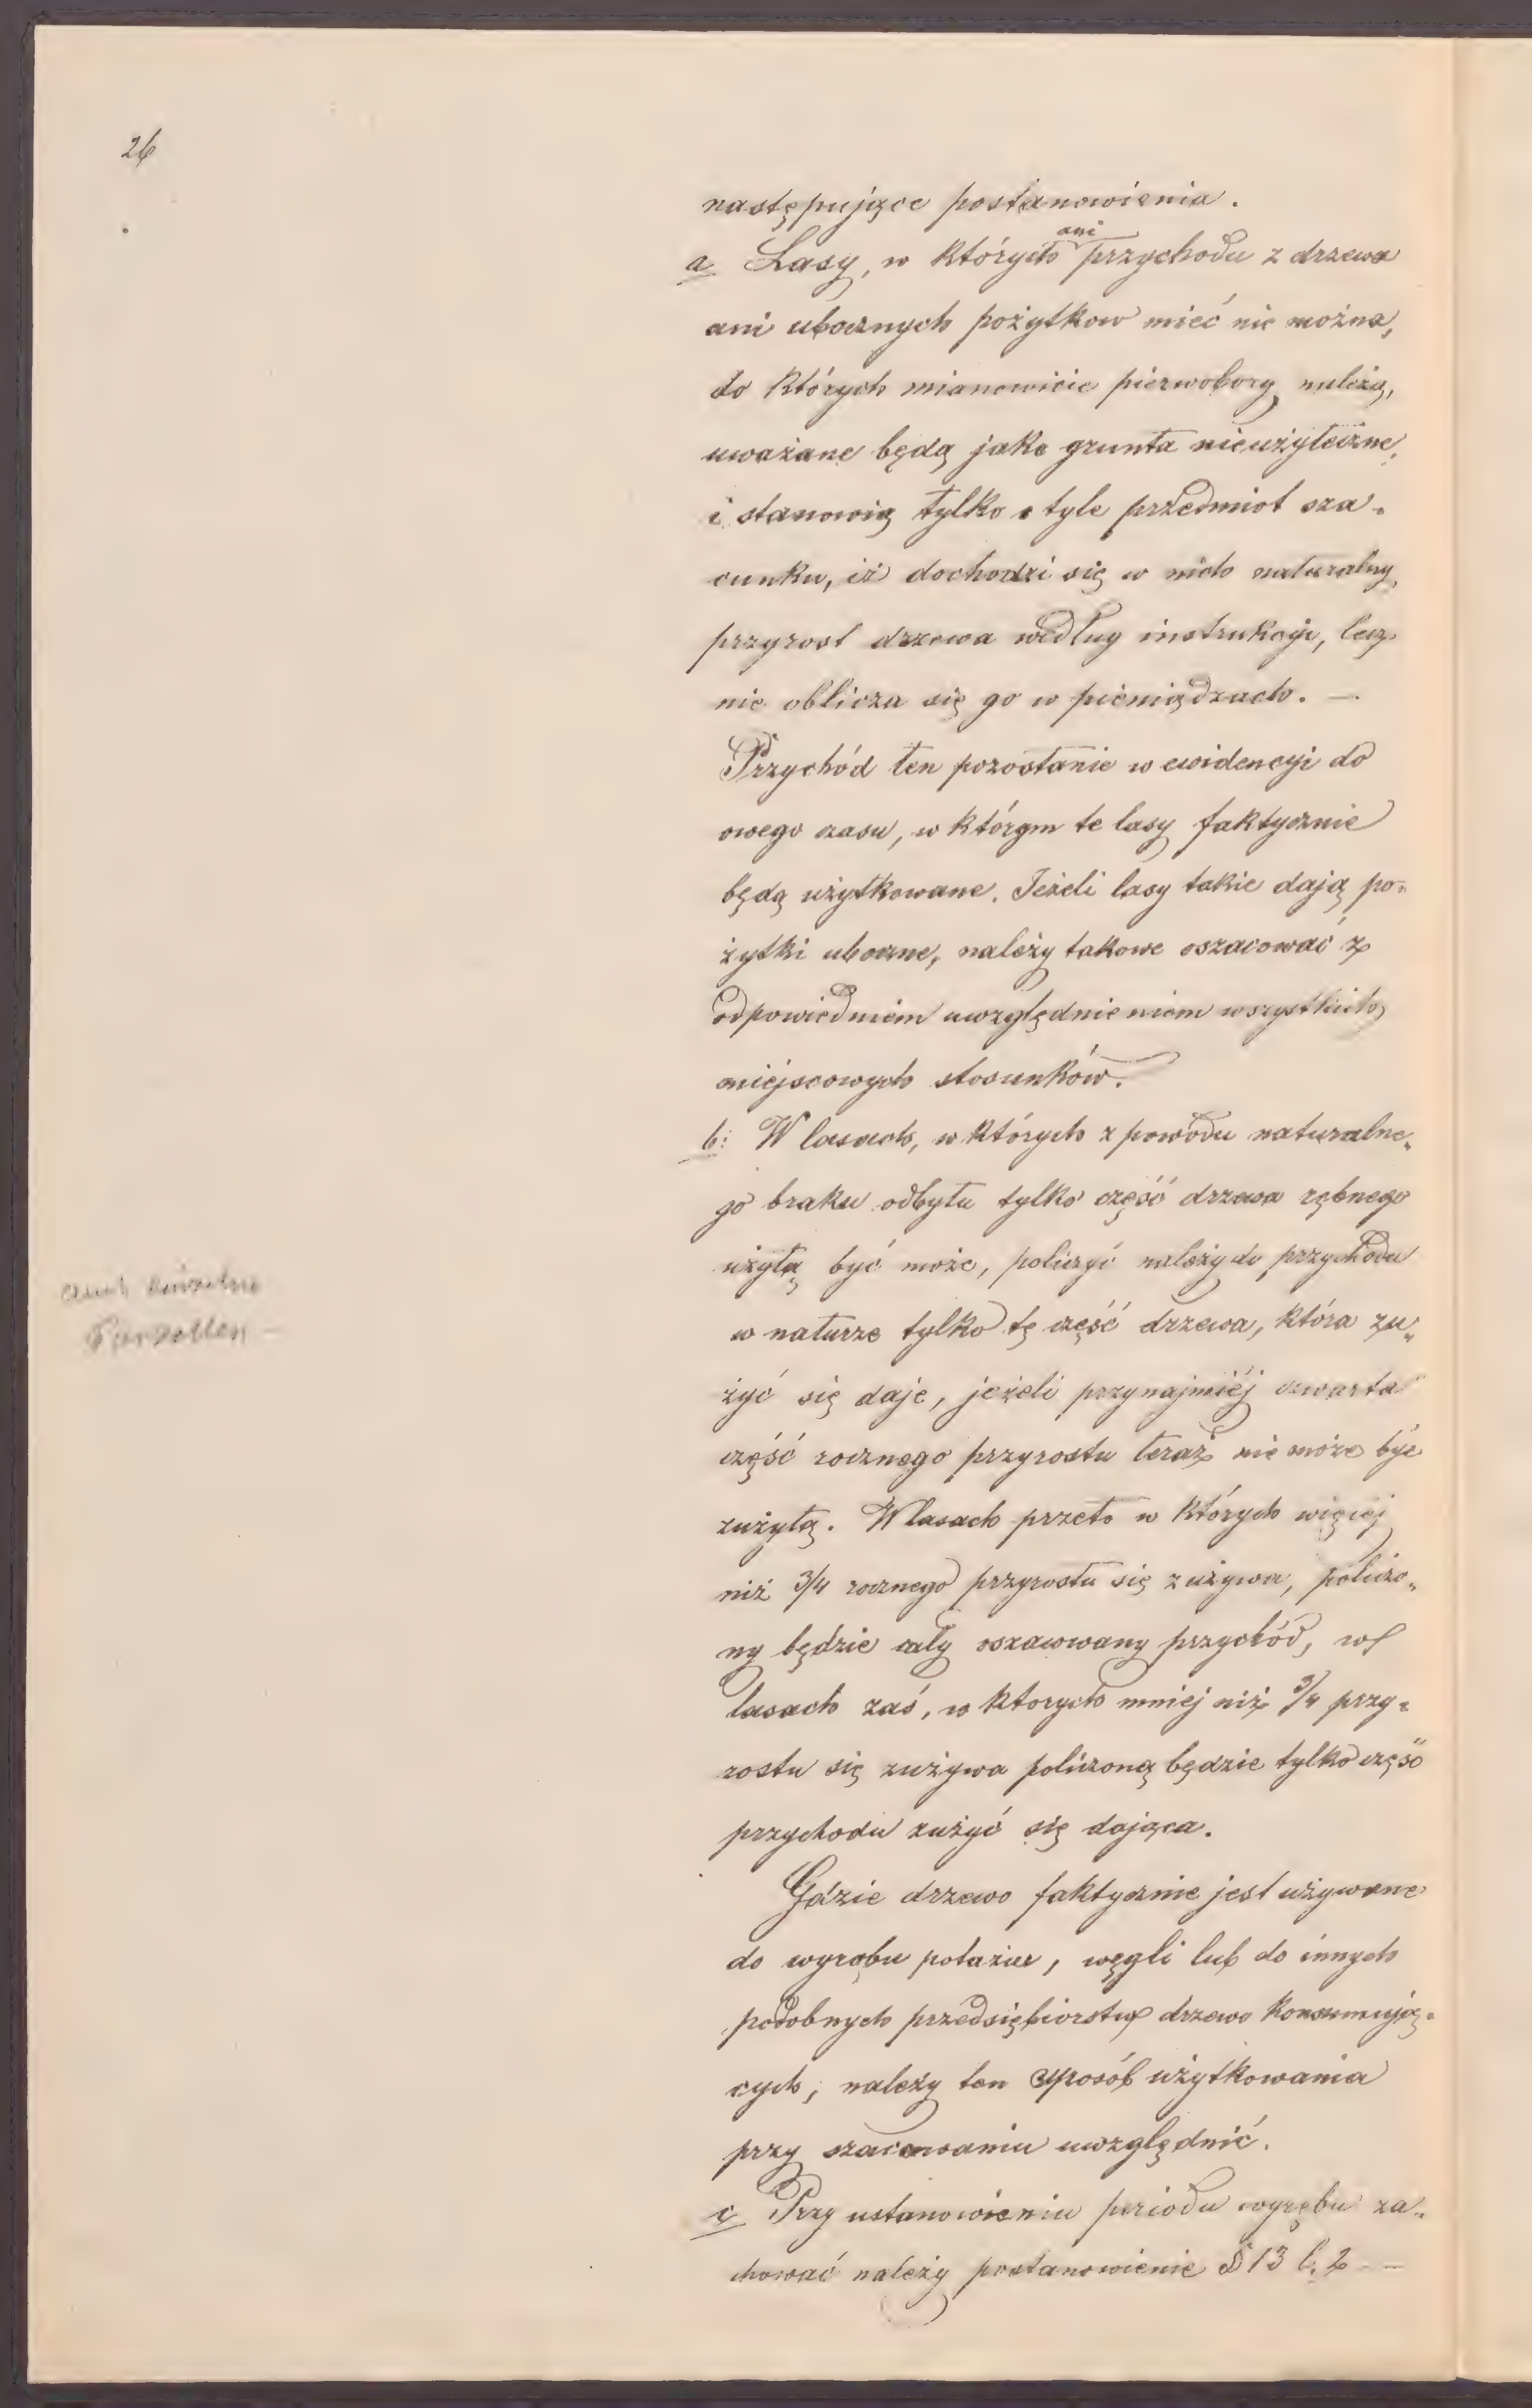 26
następujące postanowienia.
a Lasy, w których ani przychodu z drzewa
ani ubocznych pożytkow mieć nie można,
do których mianowicie pierwobory należą,
uważane będą jako grunta nieużyteczne,
i stanowią tylko o tyle przedmiot sza„
cunku, iż dochodzi się w nich naturalny
przyrost drzewa według instrukcyi, lecz
nie oblicza się go w pieniądzach. —
Przychód ten pozostanie w ewidencyi do
owego czasu, w którym te lasy faktycznie
będą użytkowane. Jeżeli lasy takie dają po„
żytki uboczne, należy takowe oszacować z
odpowiedniem uwzględnieniem wszystkich
miejscowych stosunków.
b: W lasach, w których z powodu naturalne„
go braku odbytu tylko część drzewa rębnego
użytą być może, policzyć należy do przychodu
w naturze tylko tę część drzewa, która zu„
żyć się daje, jeżeli przynajmiéj czwarta
część rocznego przyrostu teraz nie może być
zużytą. W lasach przeto w których więcéj
niż 3/4 rocznego przyrostu się zużywa, policzo„
ny będzie cały oszacowany przychód, w
lasach zaś, w ktorych mniej niż 3/4 przy„
rostu się zużywa policzoną będzie tylko część
przychodu zużyć się dająca.
Gdzie drzewo faktycznie jest używane
do wyrobu potażu, węgli lub do innych
podobnych przedsiębiorstw drzewo konsumują„
cych, należy ten sposób użytkowania
przy szacowaniu uwzględnić.
c Przy ustanowieniu periodu wyrębu za„
chować należy postanowienie § 13 l. 2 —
auch einzelne
Parzellen —